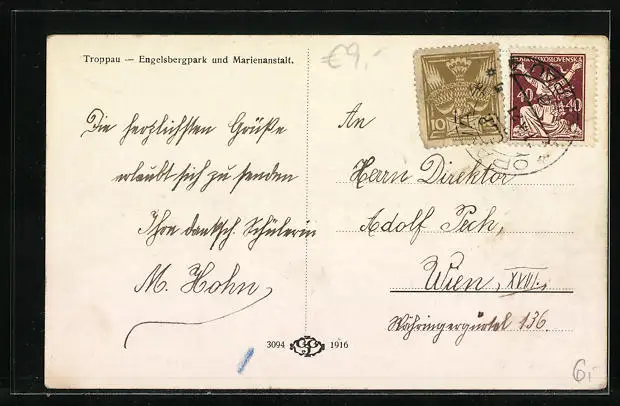 Troppau — Engelsbergpark und Marienanstalt.
€9,-
Die herzlichsten Grüße
erlaubt sich zu senden
Ihre danksch. Schülerin
M. Hohn
An
Herrn Direktor
Adolf Pech,
Wien, XVIII.,
Währingergürtel 136.
10
ČESKOSLOVENSKA
40 40
3094 1916
6,-